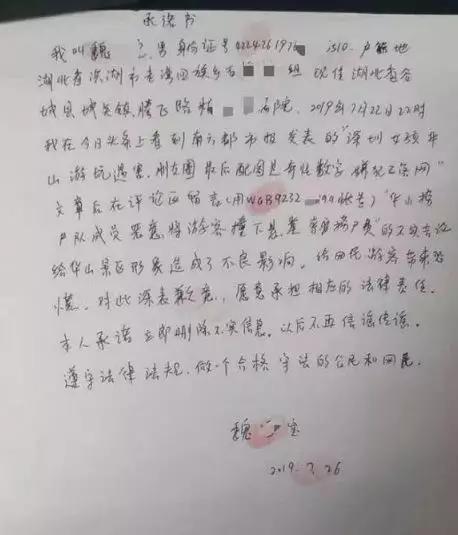 承诺书
我叫魏 男 身份证号 422426197 1510. 户籍地
湖北省洪湖市老湾回族乡 组 现住湖北省谷
城县城关镇腾飞路 2019年7月22日22时
我在今日头条上看到南方都市报发表的“深圳女孩华
山游玩遇害, 朋友圈最后配图是
文章后在评论区留言(用WGB9232 账号)“华山
护队成员恶意将游客撞下悬崖 ”的不实言论
给华山景区形象造成了不良影响. 给网民游客带来恐
慌. 对此深表歉意, 愿意承担相应的法律责任.
本人承诺立即删除不实信息. 以后不再信谣传谣.
遵守法律法规. 做一个合格守法的公民和网民.
魏 宝
2019.7.26